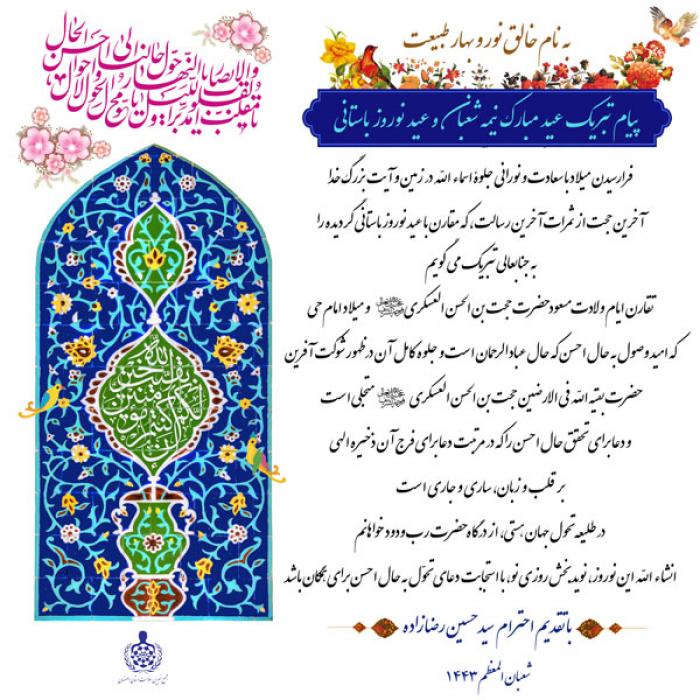 به نام خالق نور و بهار طبیعت
پیام تبریک عید مبارک نیمه شعبان و عید نوروز باستانی
فرارسیدن میلاد با سعادت و نورانی جلوهٔ اسماء الله در زمین و آیت بزرگ خدا
آخرین حجت از ثمرات آخرین رسالت، که مقارن با عید نوروز باستانی گردیده را
به جنابعالی تبریک می گویم
تقارن ایام ولادت مسعود حضرت حجت بن الحسن العسکری و میلاد امام حی
که امید وصول به حال احسن که حال عباد الرحمان است و جلوه کامل آن در ظهور شوکت آفرین
حضرت بقیه الله فی الارضین حجت بن الحسن العسکری متجلی است
و دعا برای تحقق حال احسن را که در مرتبت دعا برای فرج آن ذخیره الهی
بر قلب و زبان، ساری و جاری است
در طلیعه تحول جهان هستی، از درگاه حضرت رب ودود خواهانم
انشاء الله این نوروز، نوید بخش روزی نو، با استجابت دعای تحوّل به حال احسن برای همگان باشد
با تقدیم احترام سید حسین رضازاده
شعبان المعظم ۱۴۴۳
یا مقلب القلوب والابصار یا مدبر اللیل والنهار یا محول الحول والاحوال حول حالنا الی احسن الحال
بقیت الله خیر لکم ان کنتم مومنین